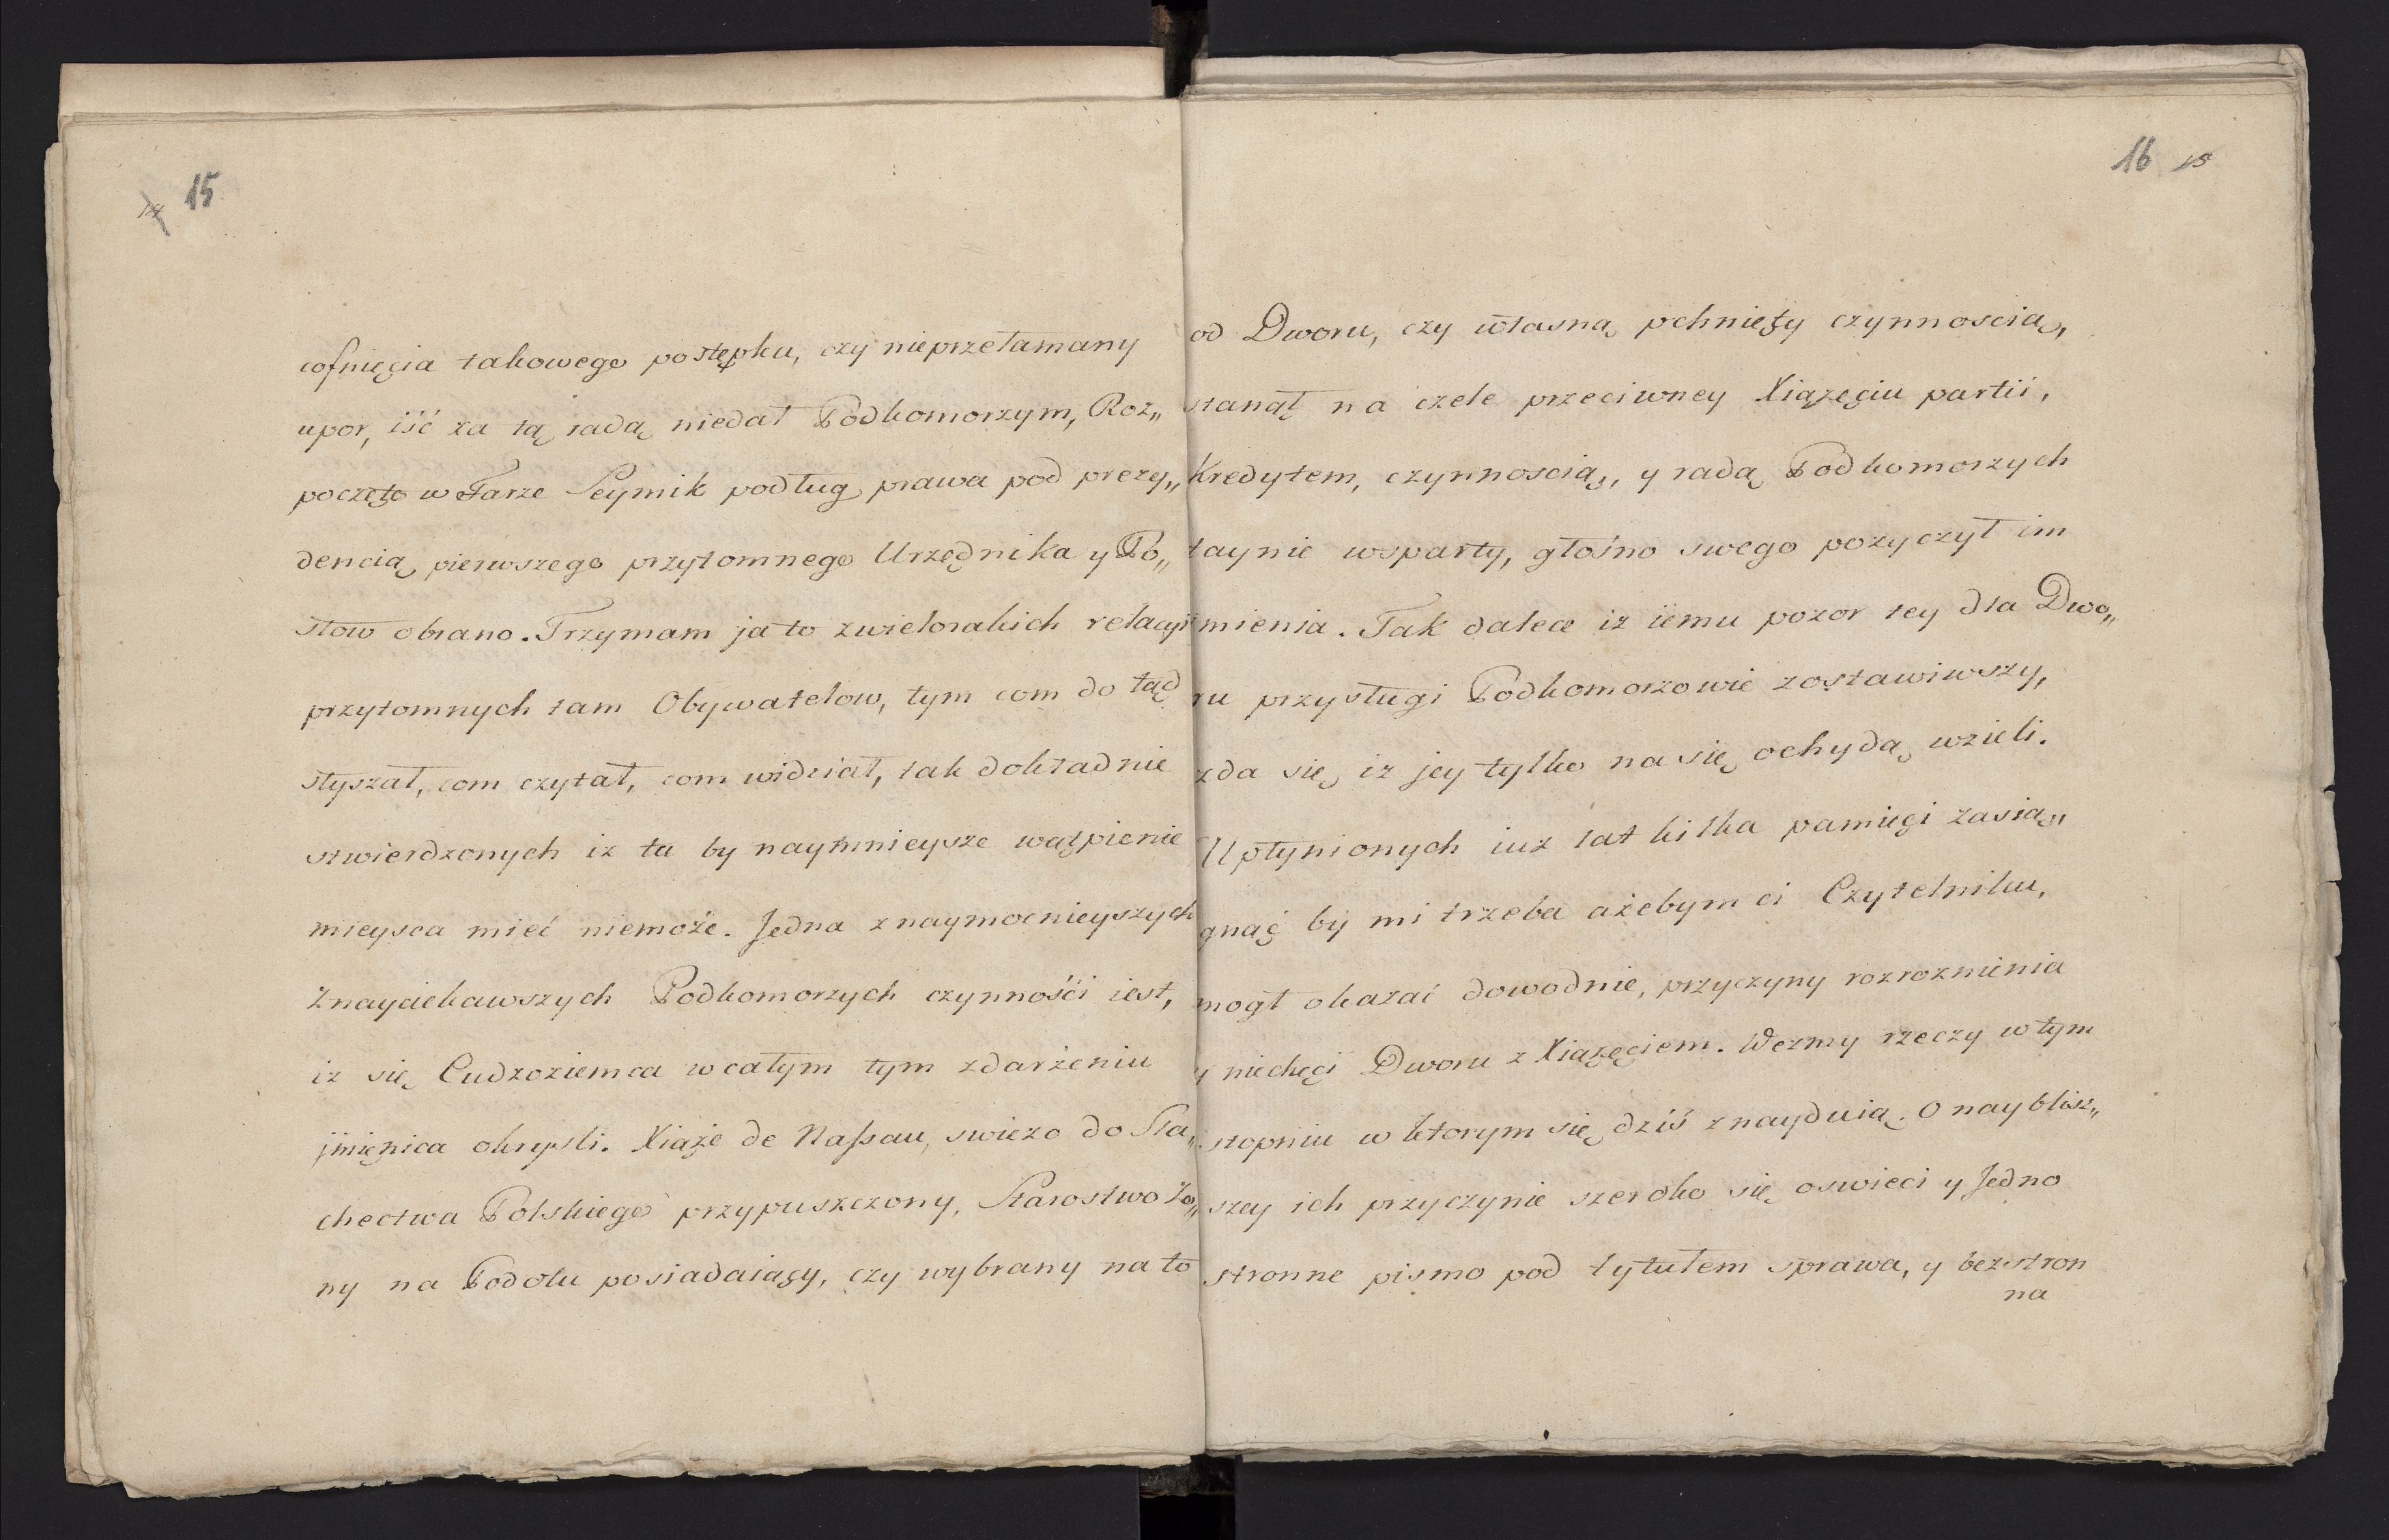 14 15
cofnięcia takowego postępku, czy nieprzełamany
upor, iść za tą radą niedał Podkomorzym, Roz„
poczęto w Farze Seymik podług prawa pod prezy„
dencią pierwszego przytomnego Urzędnika y Po„
słow obrano. Trzymam ja to z wielorakich relacyi
przytomnych tam Obywatelow, tym com do tąd
słyszał, com czytał, com widział, tak dokładnie
stwierdzonych iz tu by naymnieysze wątpienie
mieysca mieć niemoże. Jedna z naymocnieyszych
Znayciekawszych Podkomorzych czynnośći iest,
iz się Cudzoziemca w całym tym zdarżeniu
jmięnica okryśli. Xiąże de Nassau, swiezo do Sla„
chectwa Polskiego przypuszczony, Starostwo Zo„
ny na Podolu posiadaiący, czy wybrany na to
16 15
od Dworu, czy własną pchnięty czynnoscią,
stanął na czele przeciwney Xiązęciu partii,
Kredytem, czynnoscią, y radą Podkomorzych
taynie wsparty, głośno swego pozyczył im
mienia. Tak dalece iz iemu pozor tey dla Dwo„
ru przysługi Podkomorzowie zostawiwszy,
zda się iz jey tylko na się ochydą wzieli.
Upłynionych iuz lat kilka pamięci zasią„
gnąć by mi trzeba ażebym ci Czytelniku,
mogł okazać dowodnie, przyczyny rozroznienia
y niechęci Dworu z Xiązęciem. Wezmy rzeczy w tym
stopniu w ktorym się dziś znayduią. O nayblisz„
szey ich przyczynie szeroko się oswieci y Jedno
stronne pismo pod tytułem sprawa, y bezstron
na